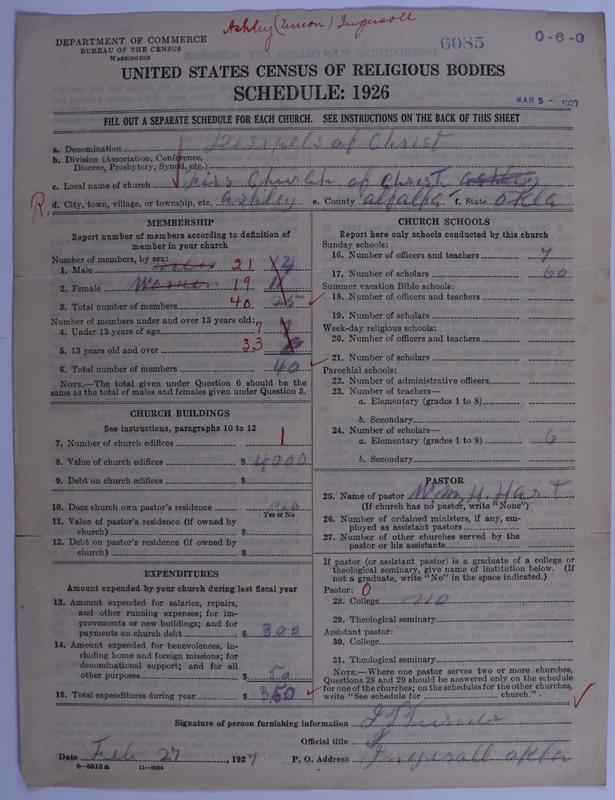 Ashley (Union) Ingersoll
DEPARTMENT OF COMMERCE
BUREAU OF THE CENSUS
WASHINGTON
6085
0-6-0
UNITED STATES CENSUS OF RELIGIOUS BODIES
SCHEDULE: 1926
MAR 5 - 1927
FILL OUT A SEPARATE SCHEDULE FOR EACH CHURCH. SEE INSTRUCTIONS ON THE BACK OF THIS SHEET
a. Denomination Disiples of Christ
b. Division (Association, Conference,
Diocese, Presbytery, Synod, etc.)
c. Local name of church Church of Christ Ashley
R. d. City, town, village, or township, etc. Ashley e. County alfalfa f. State okla
MEMBERSHIP
Report number of members according to definition of
member in your church
Number of members, by sex:
1. Male 21
2. Female 19
3. Total number of members 40 25
Number of members under and over 13 years old:
4. Under 13 years of age 7
5. 13 years old and over 33
6. Total number of members 40
NOTE.—The total given under Question 6 should be the
same as the total of males and females given under Question 3.
CHURCH BUILDINGS
See instructions, paragraphs 10 to 12
7. Number of church edifices 1
8. Value of church edifices $ 4000
9. Debt on church edifices $
10. Does church own pastor's residence no
Yes or No
11. Value of pastor's residence (if owned by
church) $
12. Debt on pastor's residence (if owned by
church) $
EXPENDITURES
Amount expended by your church during last fiscal year
13. Amount expended for salaries, repairs,
and other running expenses; for im-
provements or new buildings; and for
payments on church debt $ 300
14. Amount expended for benevolences, in-
cluding home and foreign missions; for
denominational support; and for all
other purposes $ 50
15. Total expenditures during year $ 350
CHURCH SCHOOLS
Report here only schools conducted by this church
Sunday schools:
16. Number of officers and teachers 7
17. Number of scholars 60
Summer vacation Bible schools:
18. Number of officers and teachers
19. Number of scholars
Week-day religious schools:
20. Number of officers and teachers
21. Number of scholars
Parochial schools:
22. Number of administrative officers
23. Number of teachers—
a. Elementary (grades 1 to 8)
b. Secondary
24. Number of scholars—
a. Elementary (grades 1 to 8) 6
b. Secondary
PASTOR
25. Name of pastor Wm. H. Hart
(If church has no pastor, write "None")
26. Number of ordained ministers, if any, em-
ployed as assistant pastors
27. Number of other churches served by the
pastor or his assistants
If pastor (or assistant pastor) is a graduate of a college or
theological seminary, give name of institution below. (If
not a graduate, write "No" in the space indicated.)
Pastor: 0
28. College no
29. Theological seminary
Assistant pastor:
30. College
31. Theological seminary
NOTE.—Where one pastor serves two or more churches,
Questions 28 and 29 should be answered only on the schedule
for one of the churches; on the schedules for the other churches,
write "See schedule for church."
Signature of person furnishing information
Official title
Date Feb 27, 1927 P. O. Address Ingersoll okla
8-5518a 11-9264